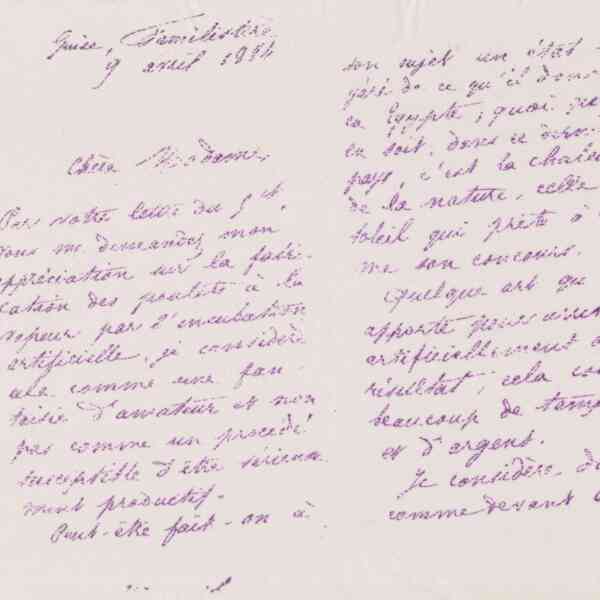 Guise, Familistère
9 avril 1884
Chère Madame,
Par votre lettre du 5 ct,
vous me demandez mon
appréciation sur la fabri-
cation des poulets à la
vapeur par l'incubation
artificielle, je considère
cela comme une fan-
taisie d'amateur et non
pas comme un procédé
susceptible d'être sérieuse-
ment productif.
Peut-être fait-on à
son sujet un état
de ce qu'il
Egypte; quoi
en soit, dans ce
pays, c'est la chaleur
de la nature, celle
soleil qui prête à
me son concours.
Quelque art qu
apporte pour
artificiellement
résultat, cela
beaucoup de temps
et d'argent.
Je considère
comme devant